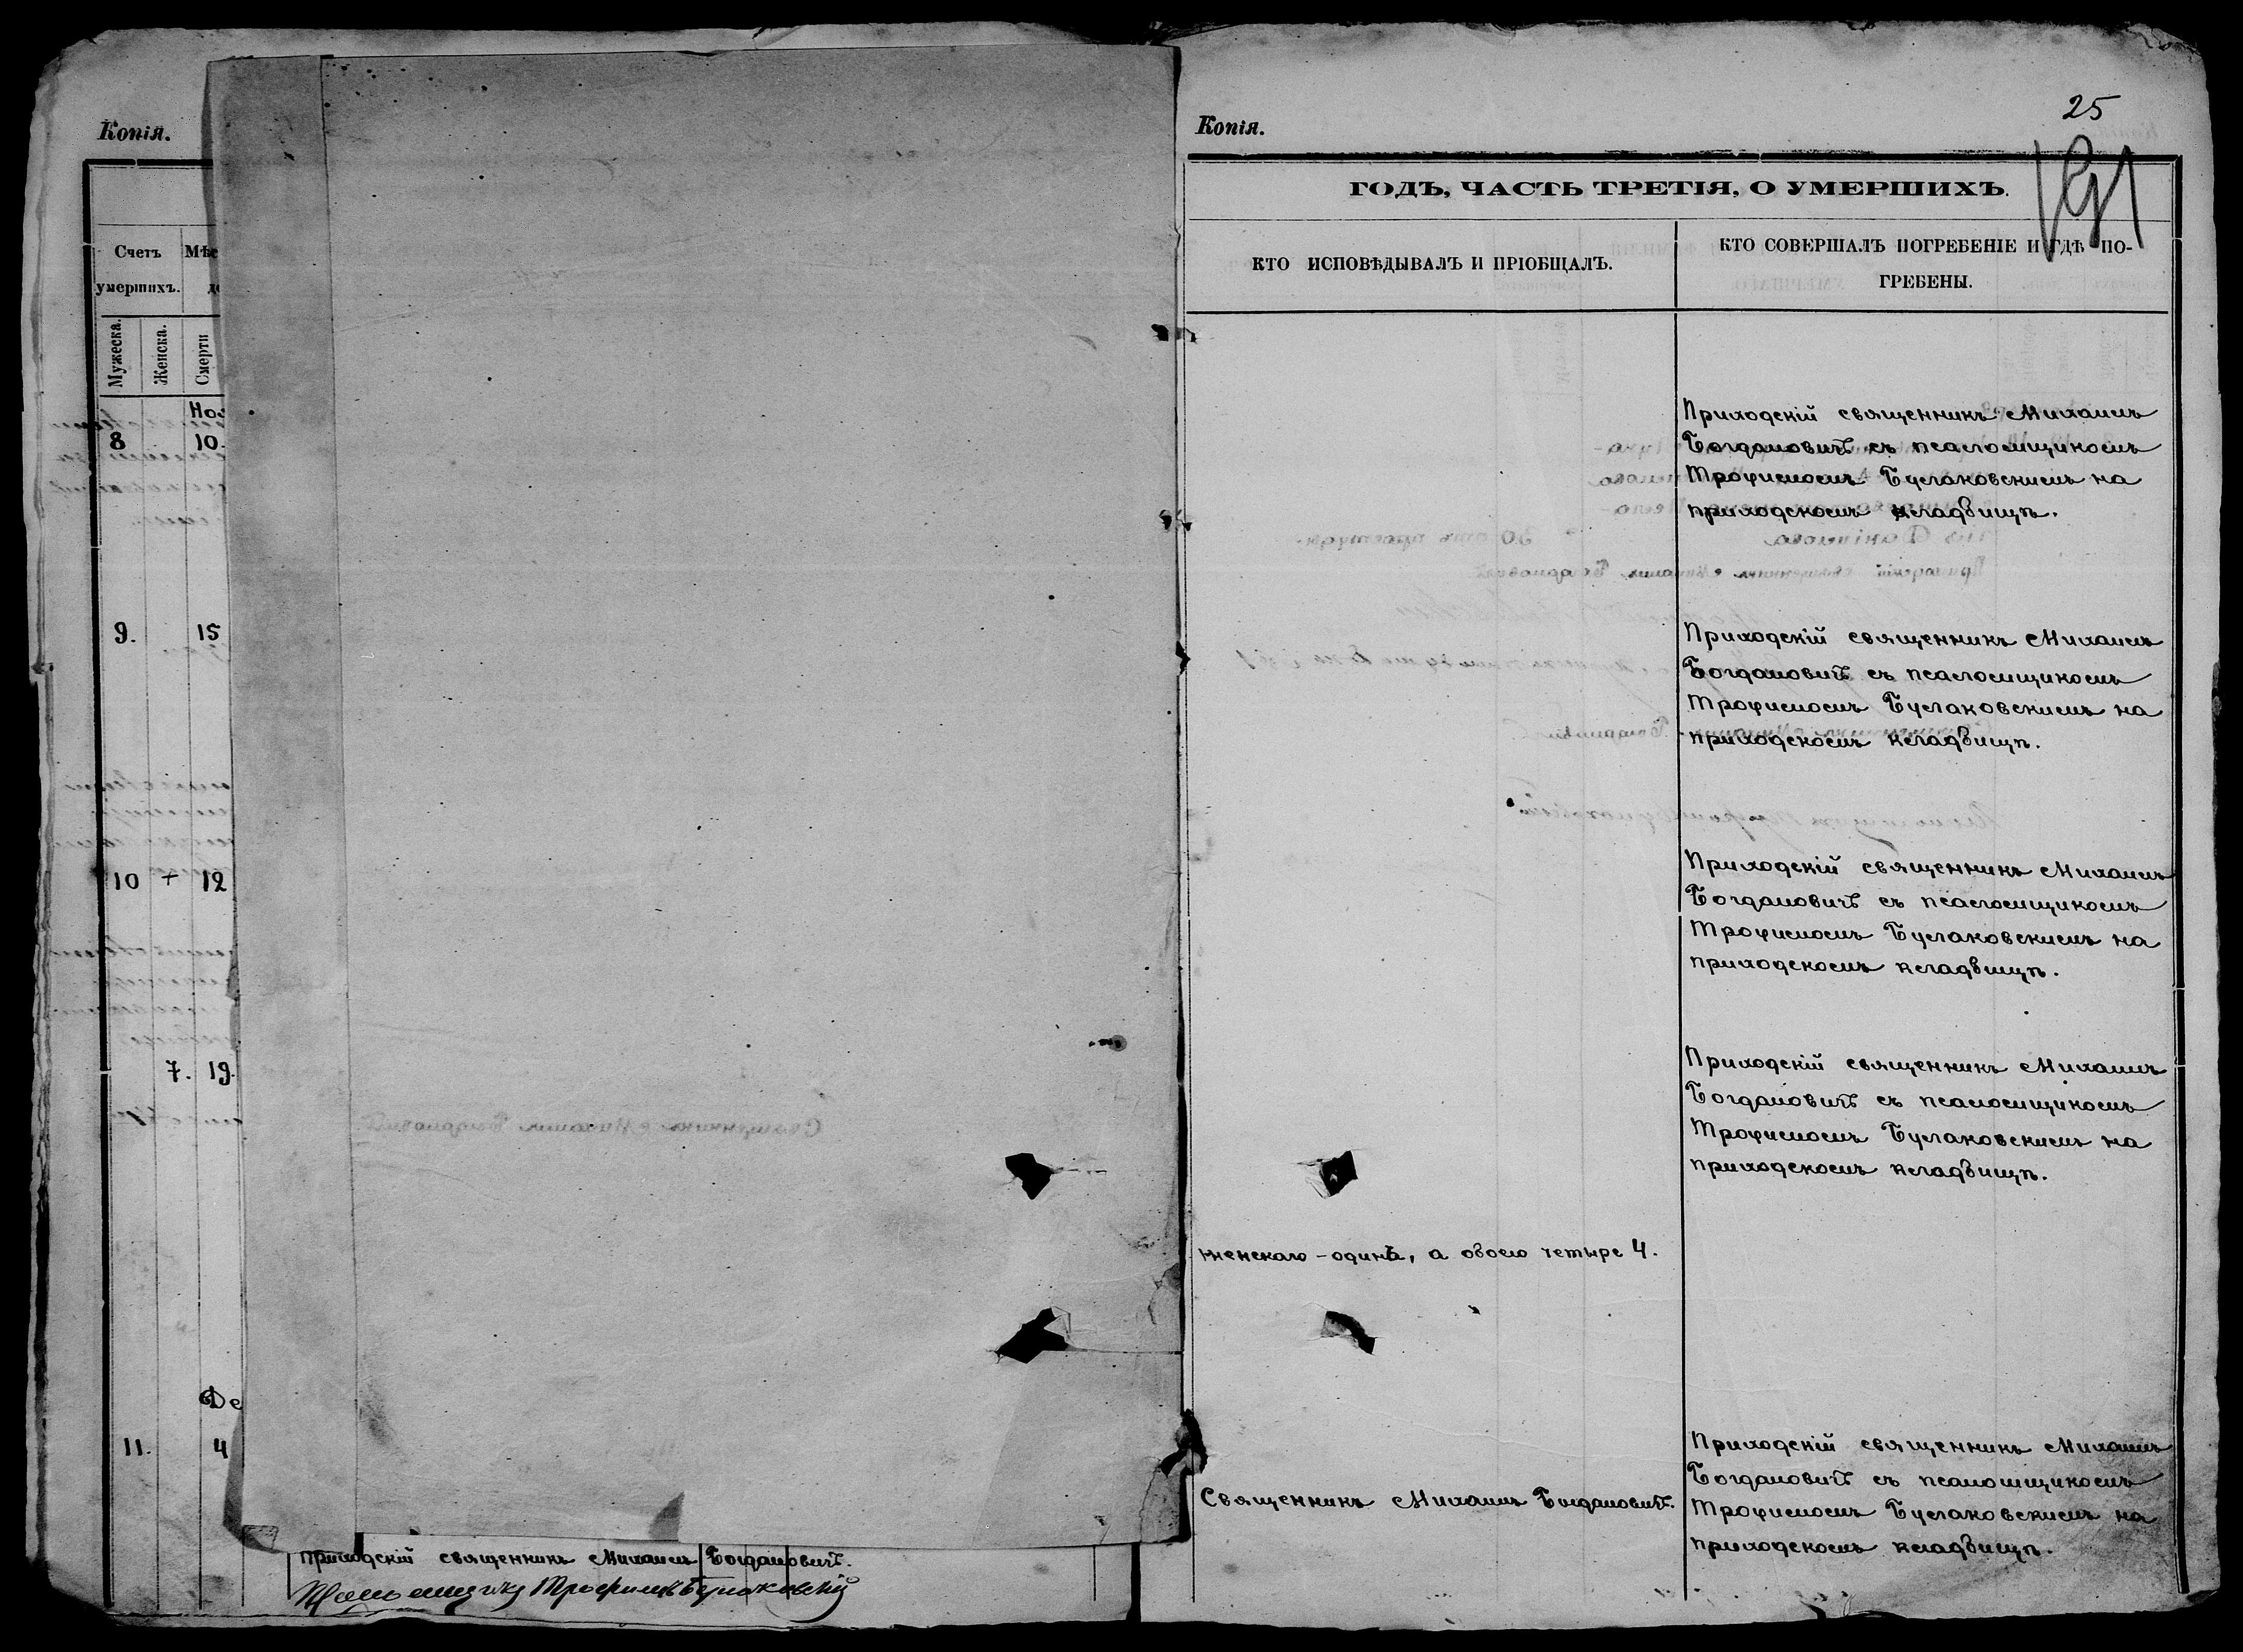 Копія.
Счетъ
умершихъ.
Мужеска.
Женска.
Смерти
8 10.
9. 15
10 + 12
7. 19.
Де
11. 4
Приходскій священникъ Михаилъ Богдановичъ.
Псаломщикъ Трофимъ Буслаковскій
25
Копія.
ГОДЪ, ЧАСТЬ ТРЕТІЯ, О УМЕРШИХЪ.
КТО ИСПОВѢДЫВАЛЪ И ПРІОБЩАЛЪ.
КТО СОВЕРШАЛЪ ПОГРЕБЕНІЕ И ГДѢ ПО-
ГРЕБЕНЫ.
Приходскій священникъ Михаилъ
Богдановичъ съ псаломщикомъ
Трофимомъ Буслаковскимъ на
приходскомъ кладбищѣ.
Приходскій священникъ Михаилъ
Богдановичъ съ псаломщикомъ
Трофимомъ Буслаковскимъ на
приходскомъ кладбищѣ.
Приходскій священникъ Михаилъ
Богдановичъ съ псаломщикомъ
Трофимомъ Буслаковскимъ на
приходскомъ кладбищѣ.
Приходскій священникъ Михаилъ
Богдановичъ съ псаломщикомъ
Трофимомъ Буслаковскимъ на
приходскомъ кладбищѣ.
женскаго - одинъ, а обоего четыре 4.
Священникъ Михаилъ Богдановичъ.
Приходскій священникъ Михаилъ
Богдановичъ съ псаломщикомъ
Трофимомъ Буслаковскимъ на
приходскомъ кладбищѣ.